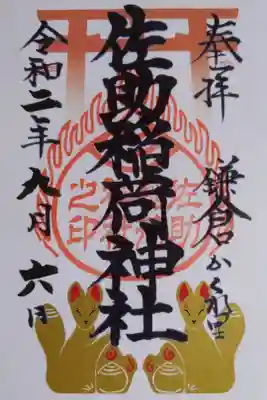 奉拝
鎌倉かくれ里
佐助稲荷神社
令和二年九月六日
佐助
之印